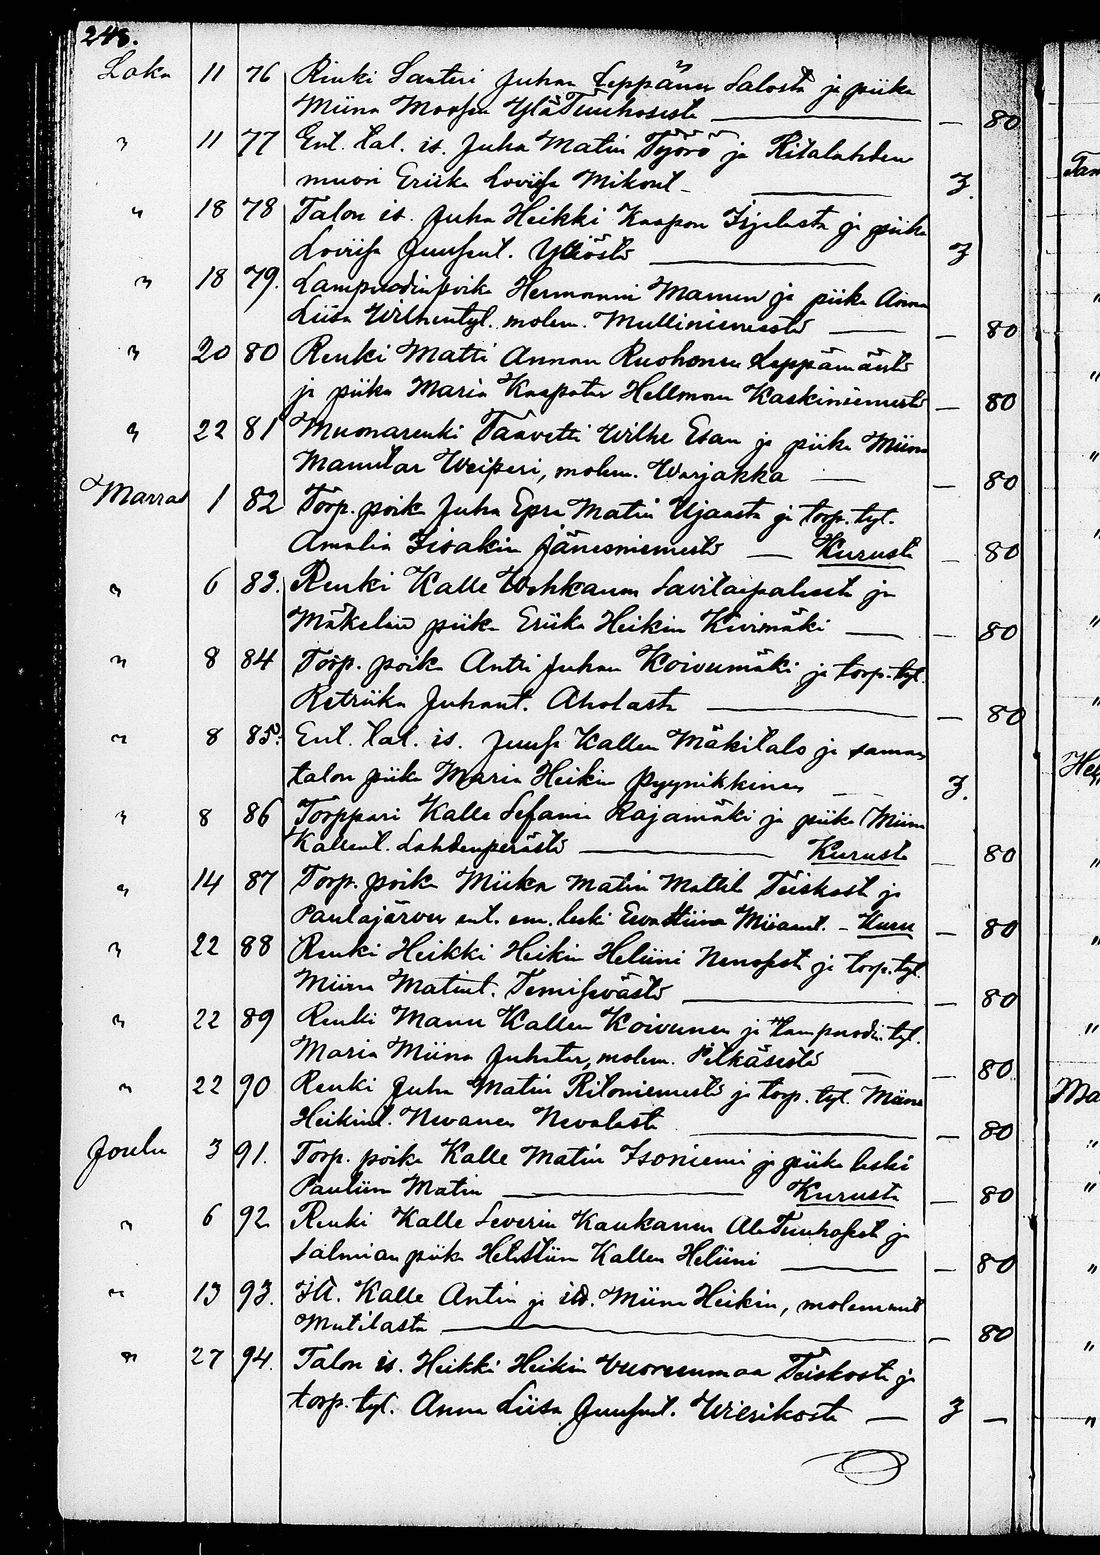 248.
Loka 11 76 Renki Santeri Juhan Leppänen Salosta ja piika
Miina Moosen YläTuuhosesta — 80
" 11 77 Ent. tal. is. Juha Matin Työrö ja Ritalahden
muori Eriika Loviisa Mikont. 3.
" 18 78 Talon is. Juha Heikki Kaapon ja piika
Loviisa Juusent. 3
" 18 79. Lampuodinpoika Hermanni Manun ja piika Anna
Liisa Wilhentyt. molem. Mulliniemestä — 80
" 20 80 Renki Matti Annan Ruohonen Leppämäestä
ja piika Maria Kaapatar Hellmann Kaskiniemestä — 80
" 22 81 Muonarenki Taavetti Wilhe Esan ja piika Miina
Manutar Weiperi, molem. Warjakka — 80
Marras 1 82 Torp. poika Juha Epra Matin Ujaasta ja torp. tyt.
Amalia Iisakin Jänesniemestä — Kurusta — 80
" 6 83. Renki Kalle Wehkanen Savitaipaleesta ja
Mäkelän piika Eriika Heikin Kivimäki — 80
" 8 84 Torp. poika Antti Juhan Koivumäki ja torp. tyt.
Retriika Juhant. Aholasta — 80
" 8 85. Ent. tal. is. Juuse Kallen Mäkitalo ja saman
talon piika Maria Heikin Pyynikkinen 3.
" 8 86 Torppari Kalle Sefanin Rajamäki ja piika Miina
Kallent. Lahdenperästä — Kurusta — 80
" 14 87 Torp. poika Miika Matin Mattil Teiskost ja
Paulajärven ent. em. leski Ewa Stiina — Kuru — 80
" 22 88 Renki Heikki Heikin Heliini ja torp. tyt.
Miina Matint. — 80
" 22 89 Renki Manu Kallen Koivunen ja Lampuodin tyt.
Maria Miina Juhatar, molem. Pitkäsestä — 80
" 22 90 Renki Juha Matin Ritoniemestä ja torp. tyt. Miina
Heikint. Nevanen Nevalasta — 80
Joulu 3 91. Torp. poika Kalle Matin Isoniemi ja piika leski
Pauliin Matin — Kurusta — 80
" 6 92 Renki Kalle Severin Kaukanen AlaTuuhosest ja
Salmian piika Hetastiin Kallen Heliini — 80
" 13 93. Itl. Kalle Antin ja itl. Miina Heikin, molemmat
Mutilasta — 80
" 27 94. Talon is. Heikki Heikin Vuorenmaa Teiskosta ja
torp. tyt. Anna Liisa Juusent. — 3 —